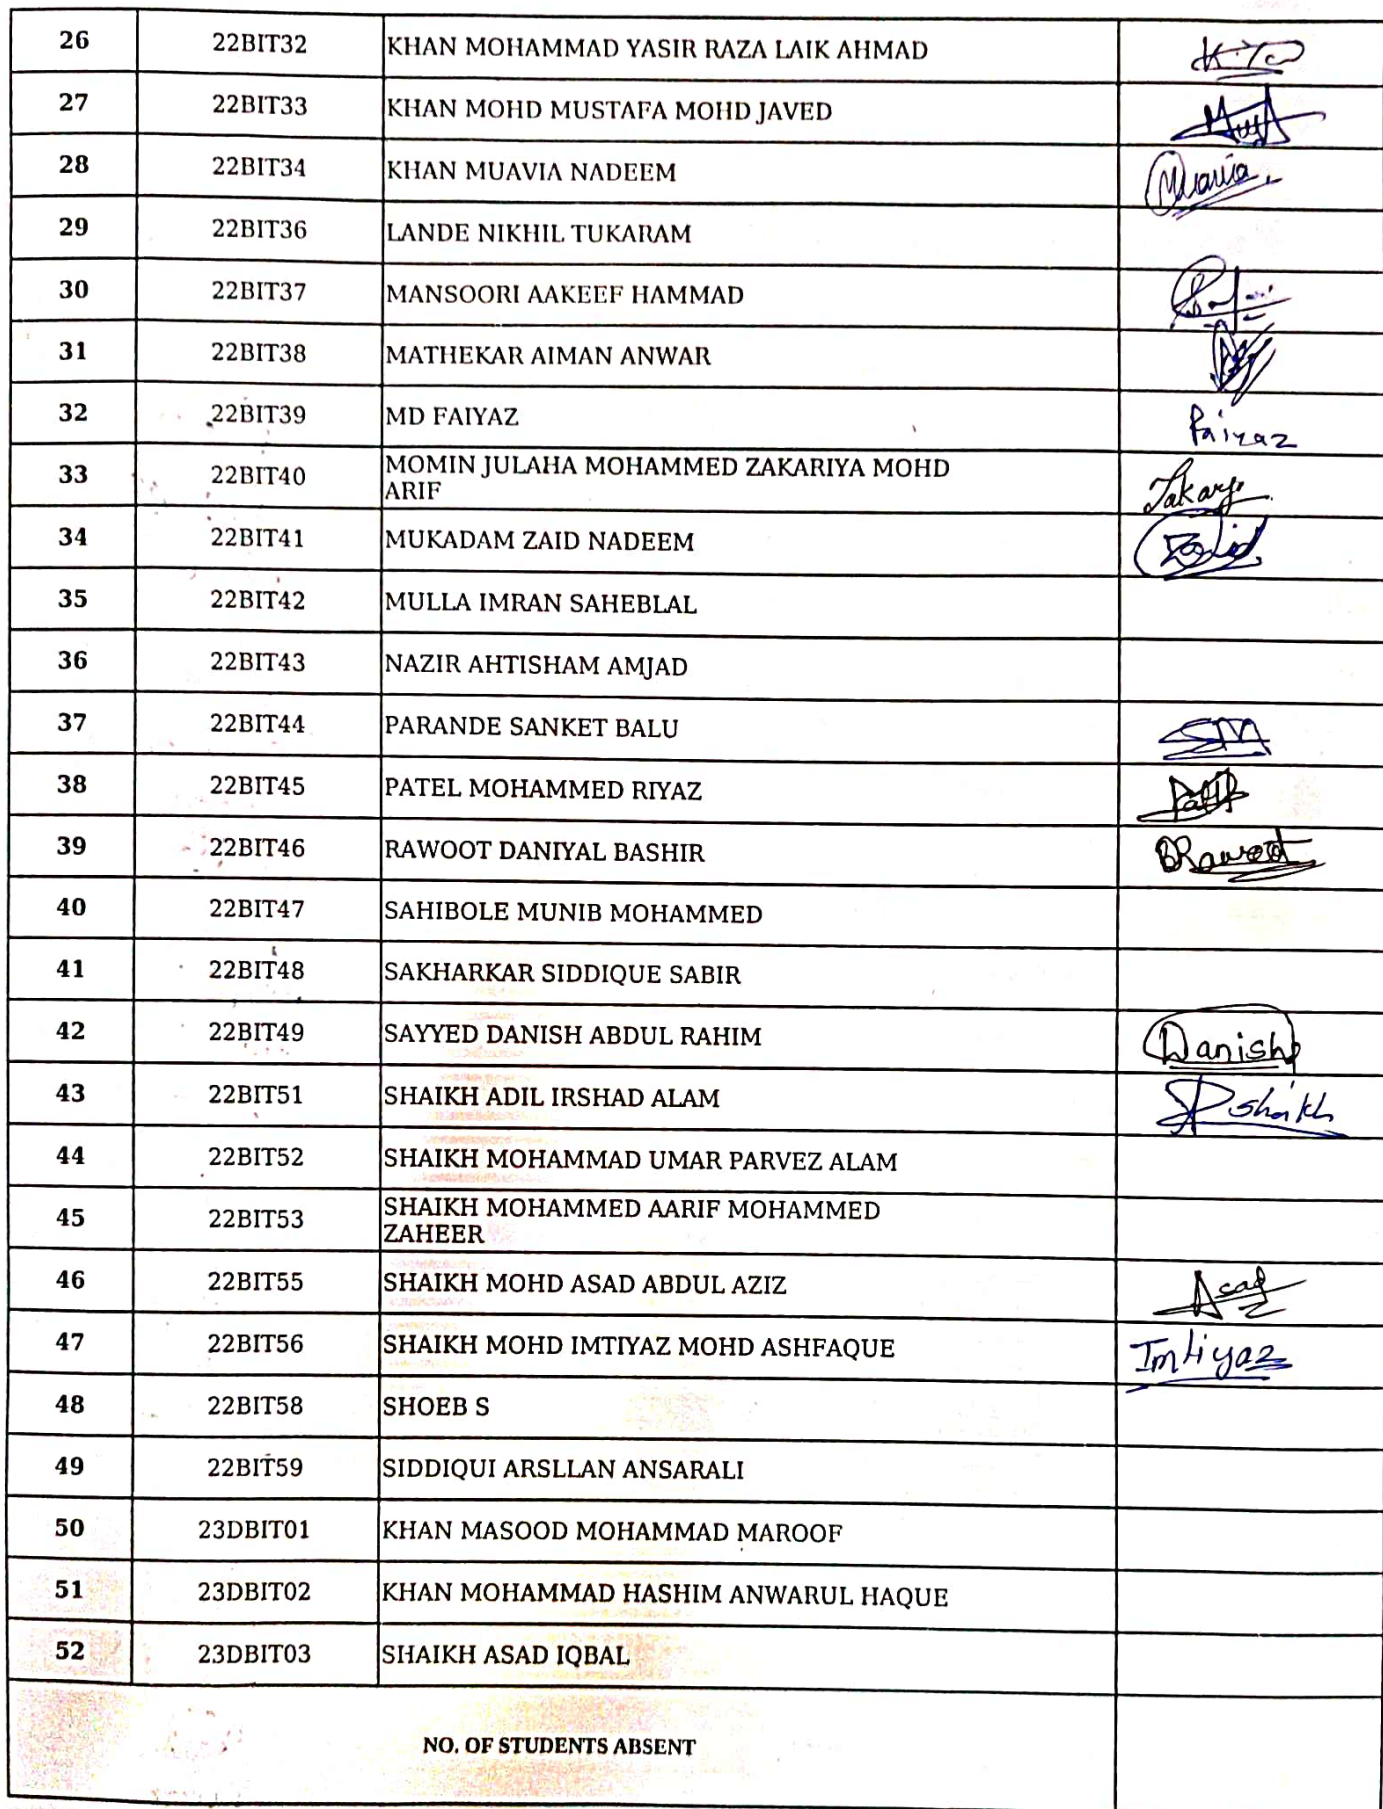 26 22BIT32 KHAN MOHAMMAD YASIR RAZA LAIK AHMAD
27 22BIT33 KHAN MOHD MUSTAFA MOHD JAVED
28 22BIT34 KHAN MUAVIA NADEEM Muavia
29 22BIT36 LANDE NIKHIL TUKARAM
30 22BIT37 MANSOORI AAKEEF HAMMAD
31 22BIT38 MATHEKAR AIMAN ANWAR
32 22BIT39 MD FAIYAZ Faiyaz
33 22BIT40 MOMIN JULAHA MOHAMMED ZAKARIYA MOHD
ARIF
34 22BIT41 MUKADAM ZAID NADEEM Zaid
35 22BIT42 MULLA IMRAN SAHEBLAL
36 22BIT43 NAZIR AHTISHAM AMJAD
37 22BIT44 PARANDE SANKET BALU
38 22BIT45 PATEL MOHAMMED RIYAZ
39 22BIT46 RAWOOT DANIYAL BASHIR DRawoot
40 22BIT47 SAHIBOLE MUNIB MOHAMMED
41 22BIT48 SAKHARKAR SIDDIQUE SABIR
42 22BIT49 SAYYED DANISH ABDUL RAHIM Danish
43 22BIT51 SHAIKH ADIL IRSHAD ALAM Shaikh
44 22BIT52 SHAIKH MOHAMMAD UMAR PARVEZ ALAM
45 22BIT53 SHAIKH MOHAMMED AARIF MOHAMMED
ZAHEER
46 22BIT55 SHAIKH MOHD ASAD ABDUL AZIZ Asad
47 22BIT56 SHAIKH MOHD IMTIYAZ MOHD ASHFAQUE Imtiyaz
48 22BIT58 SHOEB S
49 22BIT59 SIDDIQUI ARSLLAN ANSARALI
50 23DBIT01 KHAN MASOOD MOHAMMAD MAROOF
51 23DBIT02 KHAN MOHAMMAD HASHIM ANWARUL HAQUE
52 23DBIT03 SHAIKH ASAD IQBAL
NO. OF STUDENTS ABSENT